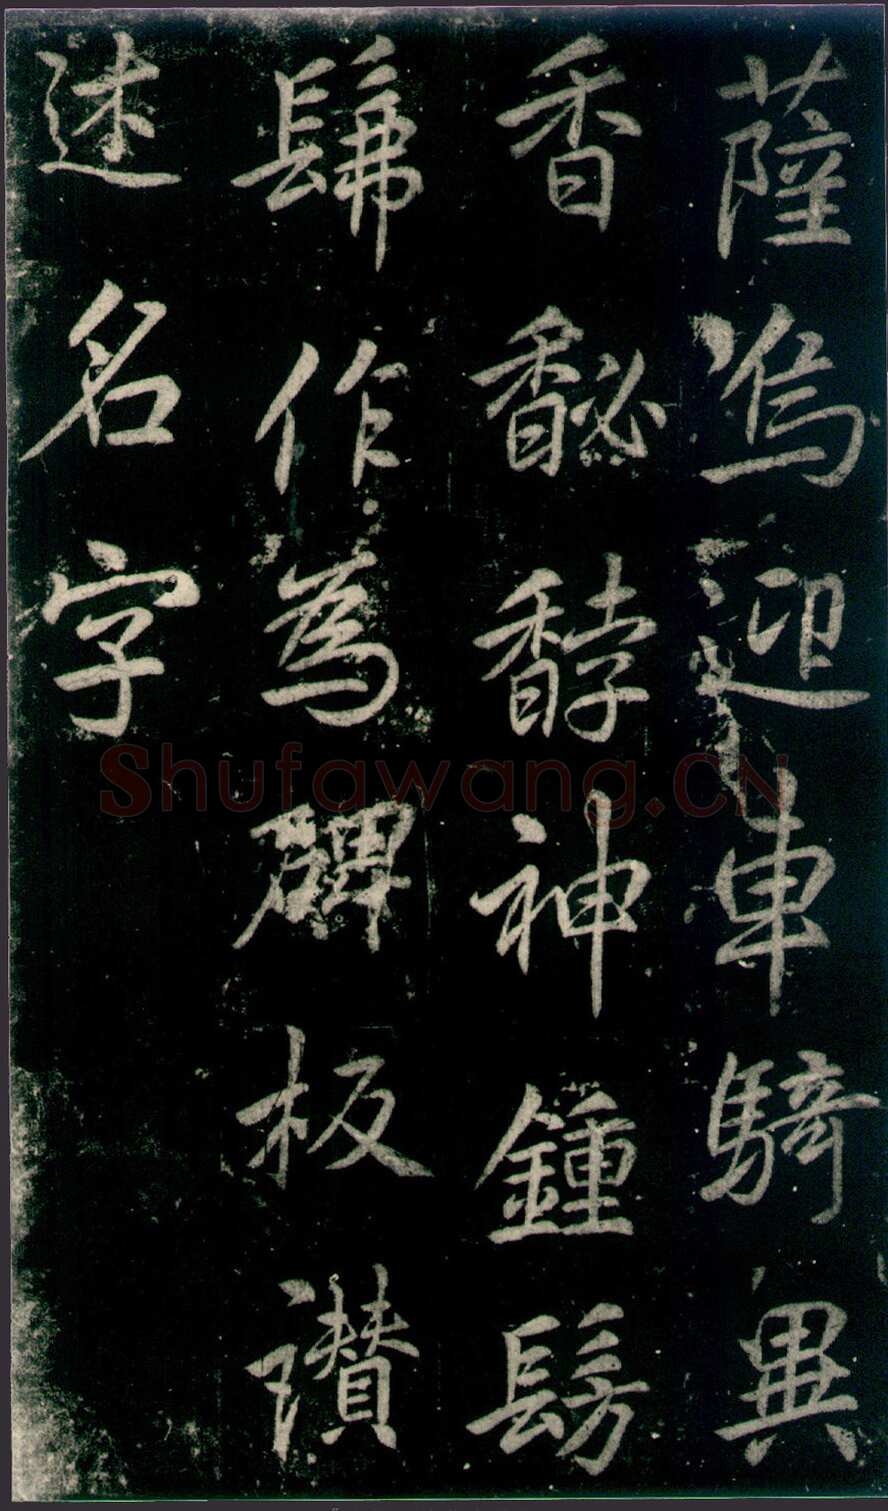 薩馮迎車騎異
香馝馞神鍾髣
髴作為碑板讃
述名字
Shufawang.CN